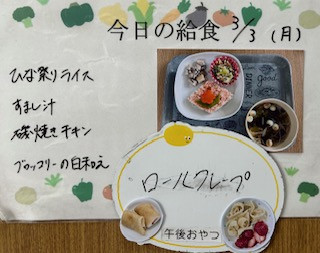 今日の給食 3/3 (月)
ひな祭りライス
すまし汁
磯焼きチキン
ブロッコリーの白和え
ロールクレープ
午後おやつ